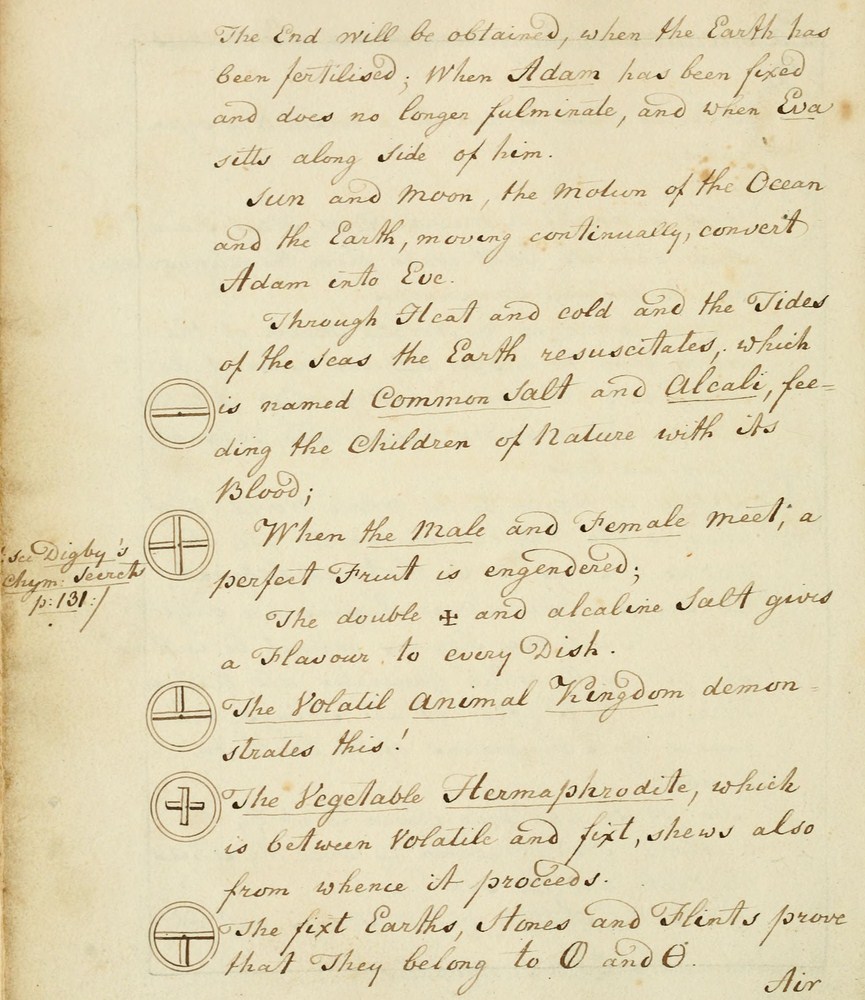 The End will be obtained, when the Earth has
been fertilised; When Adam has been fixed
and does no longer fulminate, and when Eva
sitts along side of him.
Sun and Moon, the Motion of the Ocean
and the Earth, moving continually, convert
Adam into Eve.
Through Heat and cold and the Tides
of the Seas the Earth resuscitates, which
is named Common Salt and Alcali, fee=
ding the Children of Nature with its
Blood;
When the Male and Female meet, a
perfect Fruit is engendered;
see Digby's
Chym: Secrets
p: 131:/
The double 🜊 and alcaline Salt gives
a Flavour to every Dish.
The Volatil Animal Kingdom demon=
strates this!
The Vegetable Hermaphrodite, which
is between Volatile and fixt, shews also
from whence it proceeds.
The fixt Earths, Stones and Flints prove
that They belong to 🜕 and 🜔.
Air